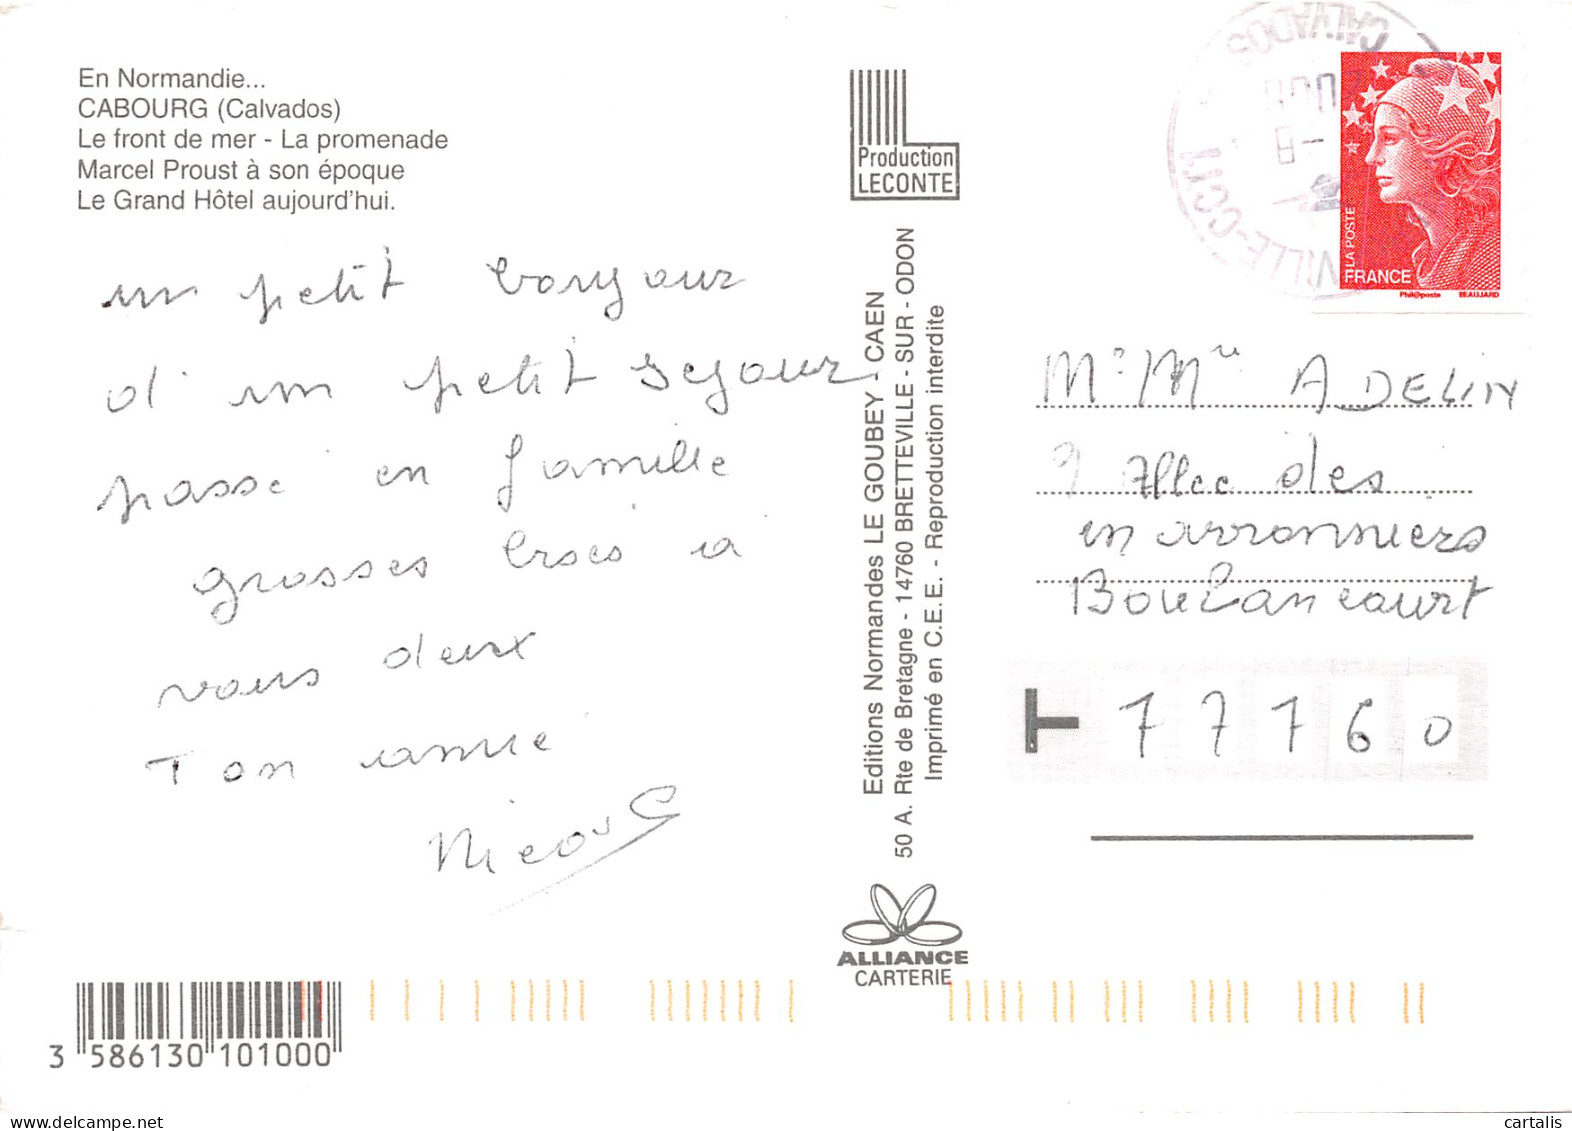 En Normandie...
CABOURG (Calvados)
Le front de mer - La promenade
Marcel Proust à son époque
Le Grand Hôtel aujourd'hui.
un petit bonjour
d'un petit sejour
passé en famille
grosses bises à
vous deux
Ton amie
Production
LECONTE
Editions Normandes LE GOUBEY - CAEN
50 A. Rte de Bretagne - 14760 BRETTEVILLE - SUR - ODON
Imprimé en C.E.E. - Reproduction interdite
ALLIANCE
CARTERIE
CALVADOS
LA POSTE
FRANCE
Phil@poste BEAUJARD
Mr Mme ADELIN
9 Allée des
marronniers
Boulancourt
77760
3 586130 101000
www.delcampe.net
cartalis